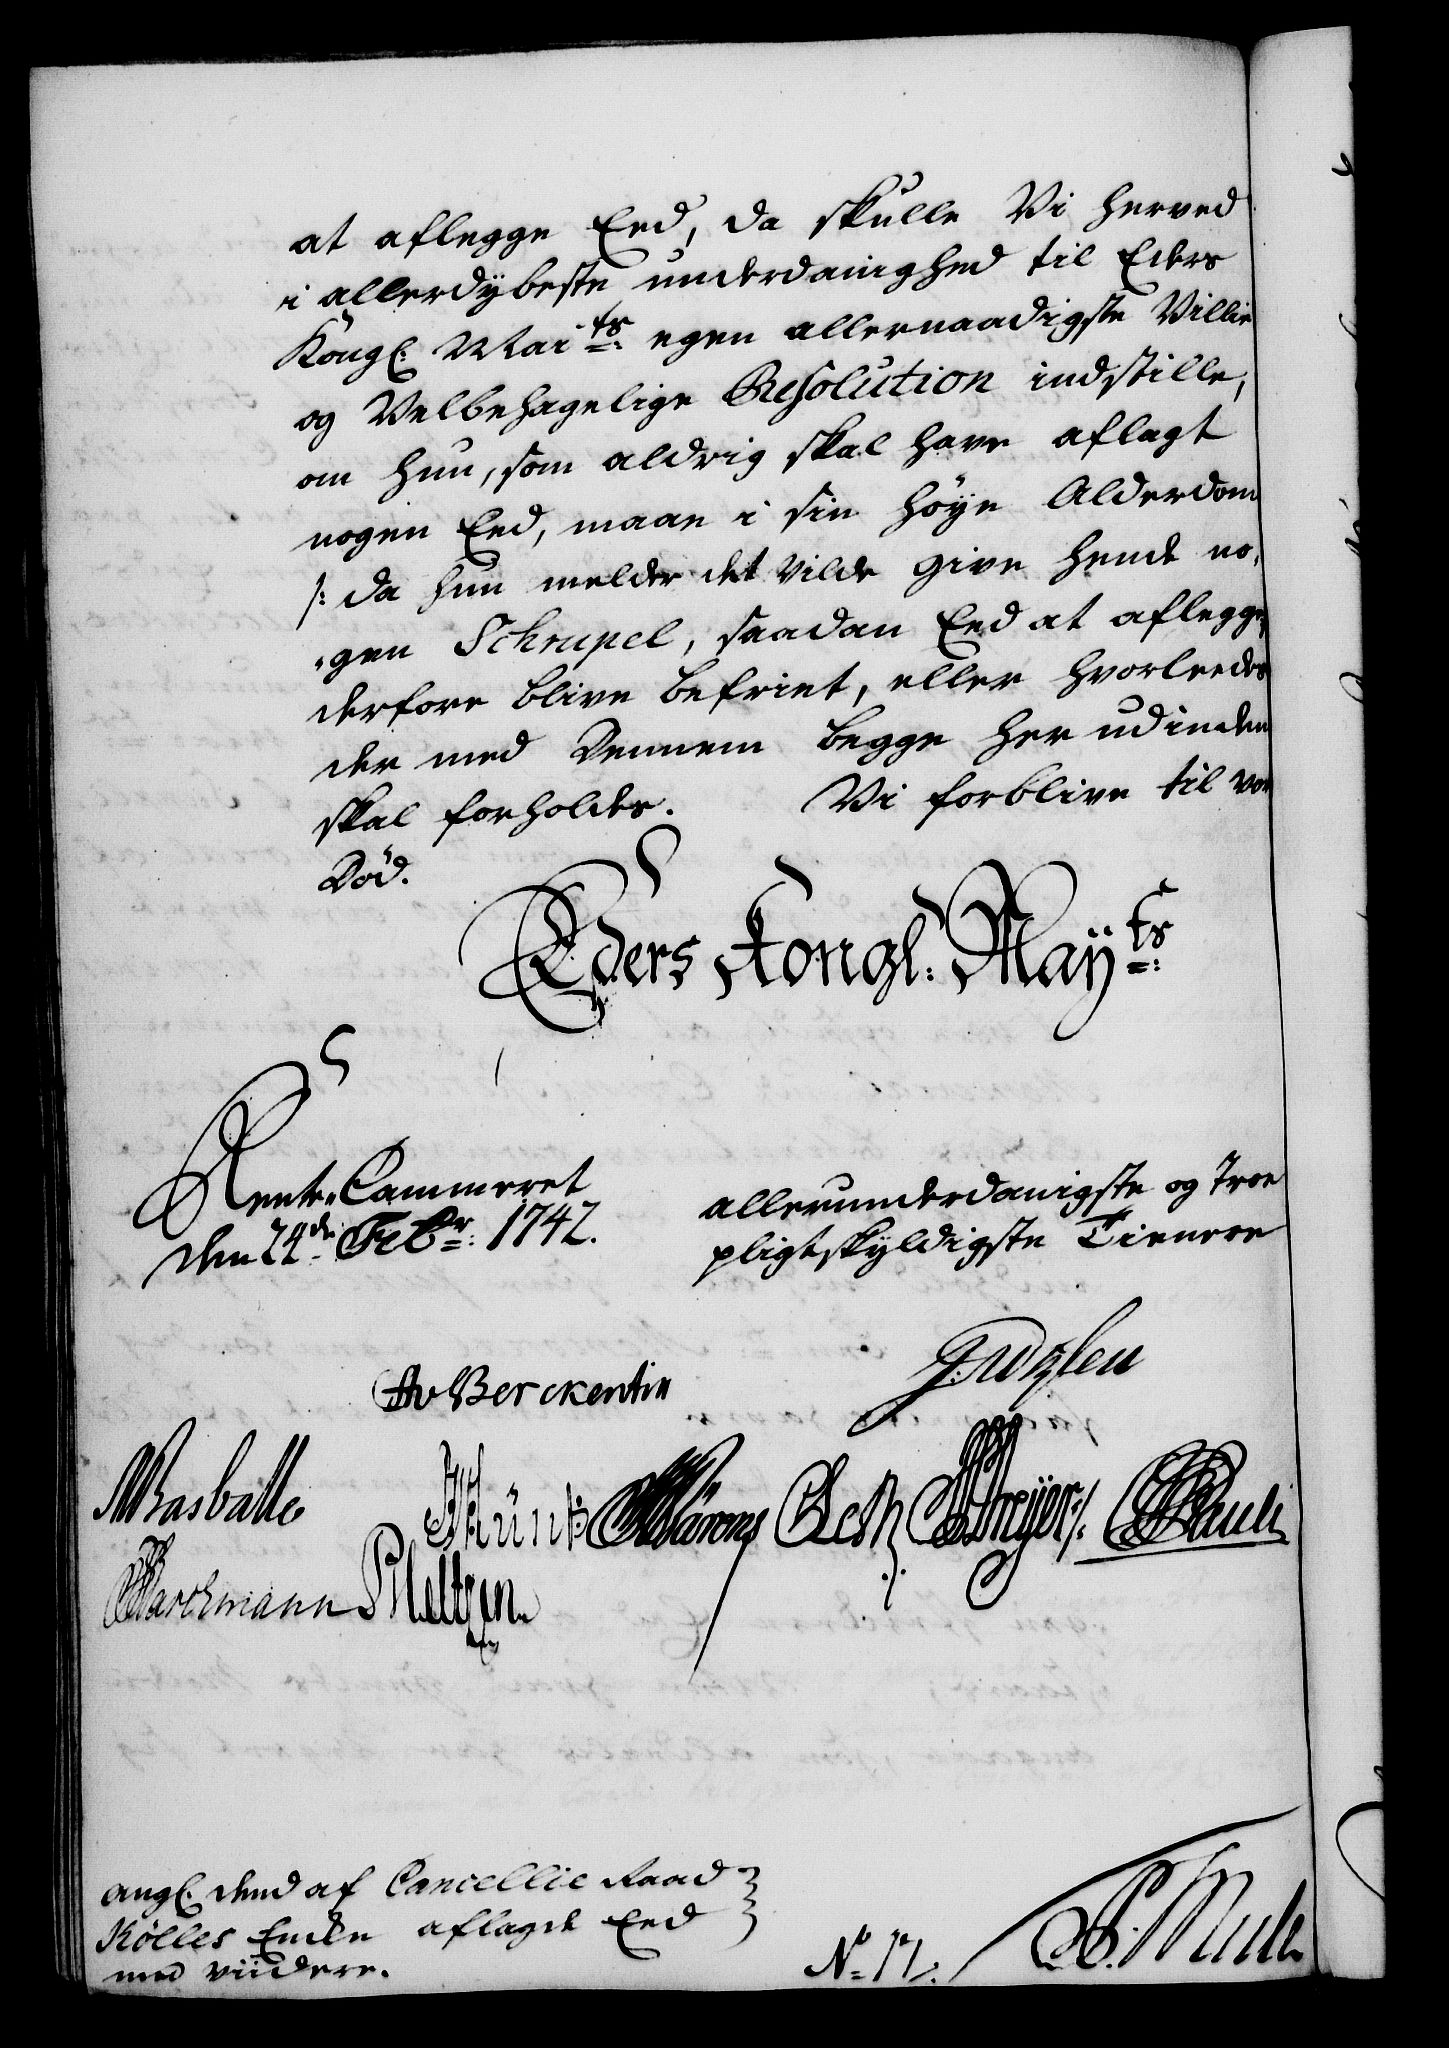 at aflegge Eed, da skulle Vi herved
i allerdybeste underdanighed til Eders
Kongl. Mai^ts: egen allernaadigste Villie
og Velbehagelige Resolution indstille,
om hun, som aldrig skal have aflagt
nogen Eed, maae i sin høye Alderdom
/: da hun melder det vilde give hende no-
gen Schrupel, saadan Eed at aflegge,
derfore blive befriet, eller hvorleedes
der med Dennem begge her udinden
skal forholdes. Vi forblive til vor
Död.
Eders Kongl: May^ts:
Rente-Cammeret
den 24^de Feb^r: 1742.
allerunderdanigste og Troe
pligtskyldigste Tienere
Av Berckentin
Basballe
Münk
Meyer
Pauli
Barchmann
angl. dend af Cancellie Raad
Kølles Encke aflagde Eed
med viidere.